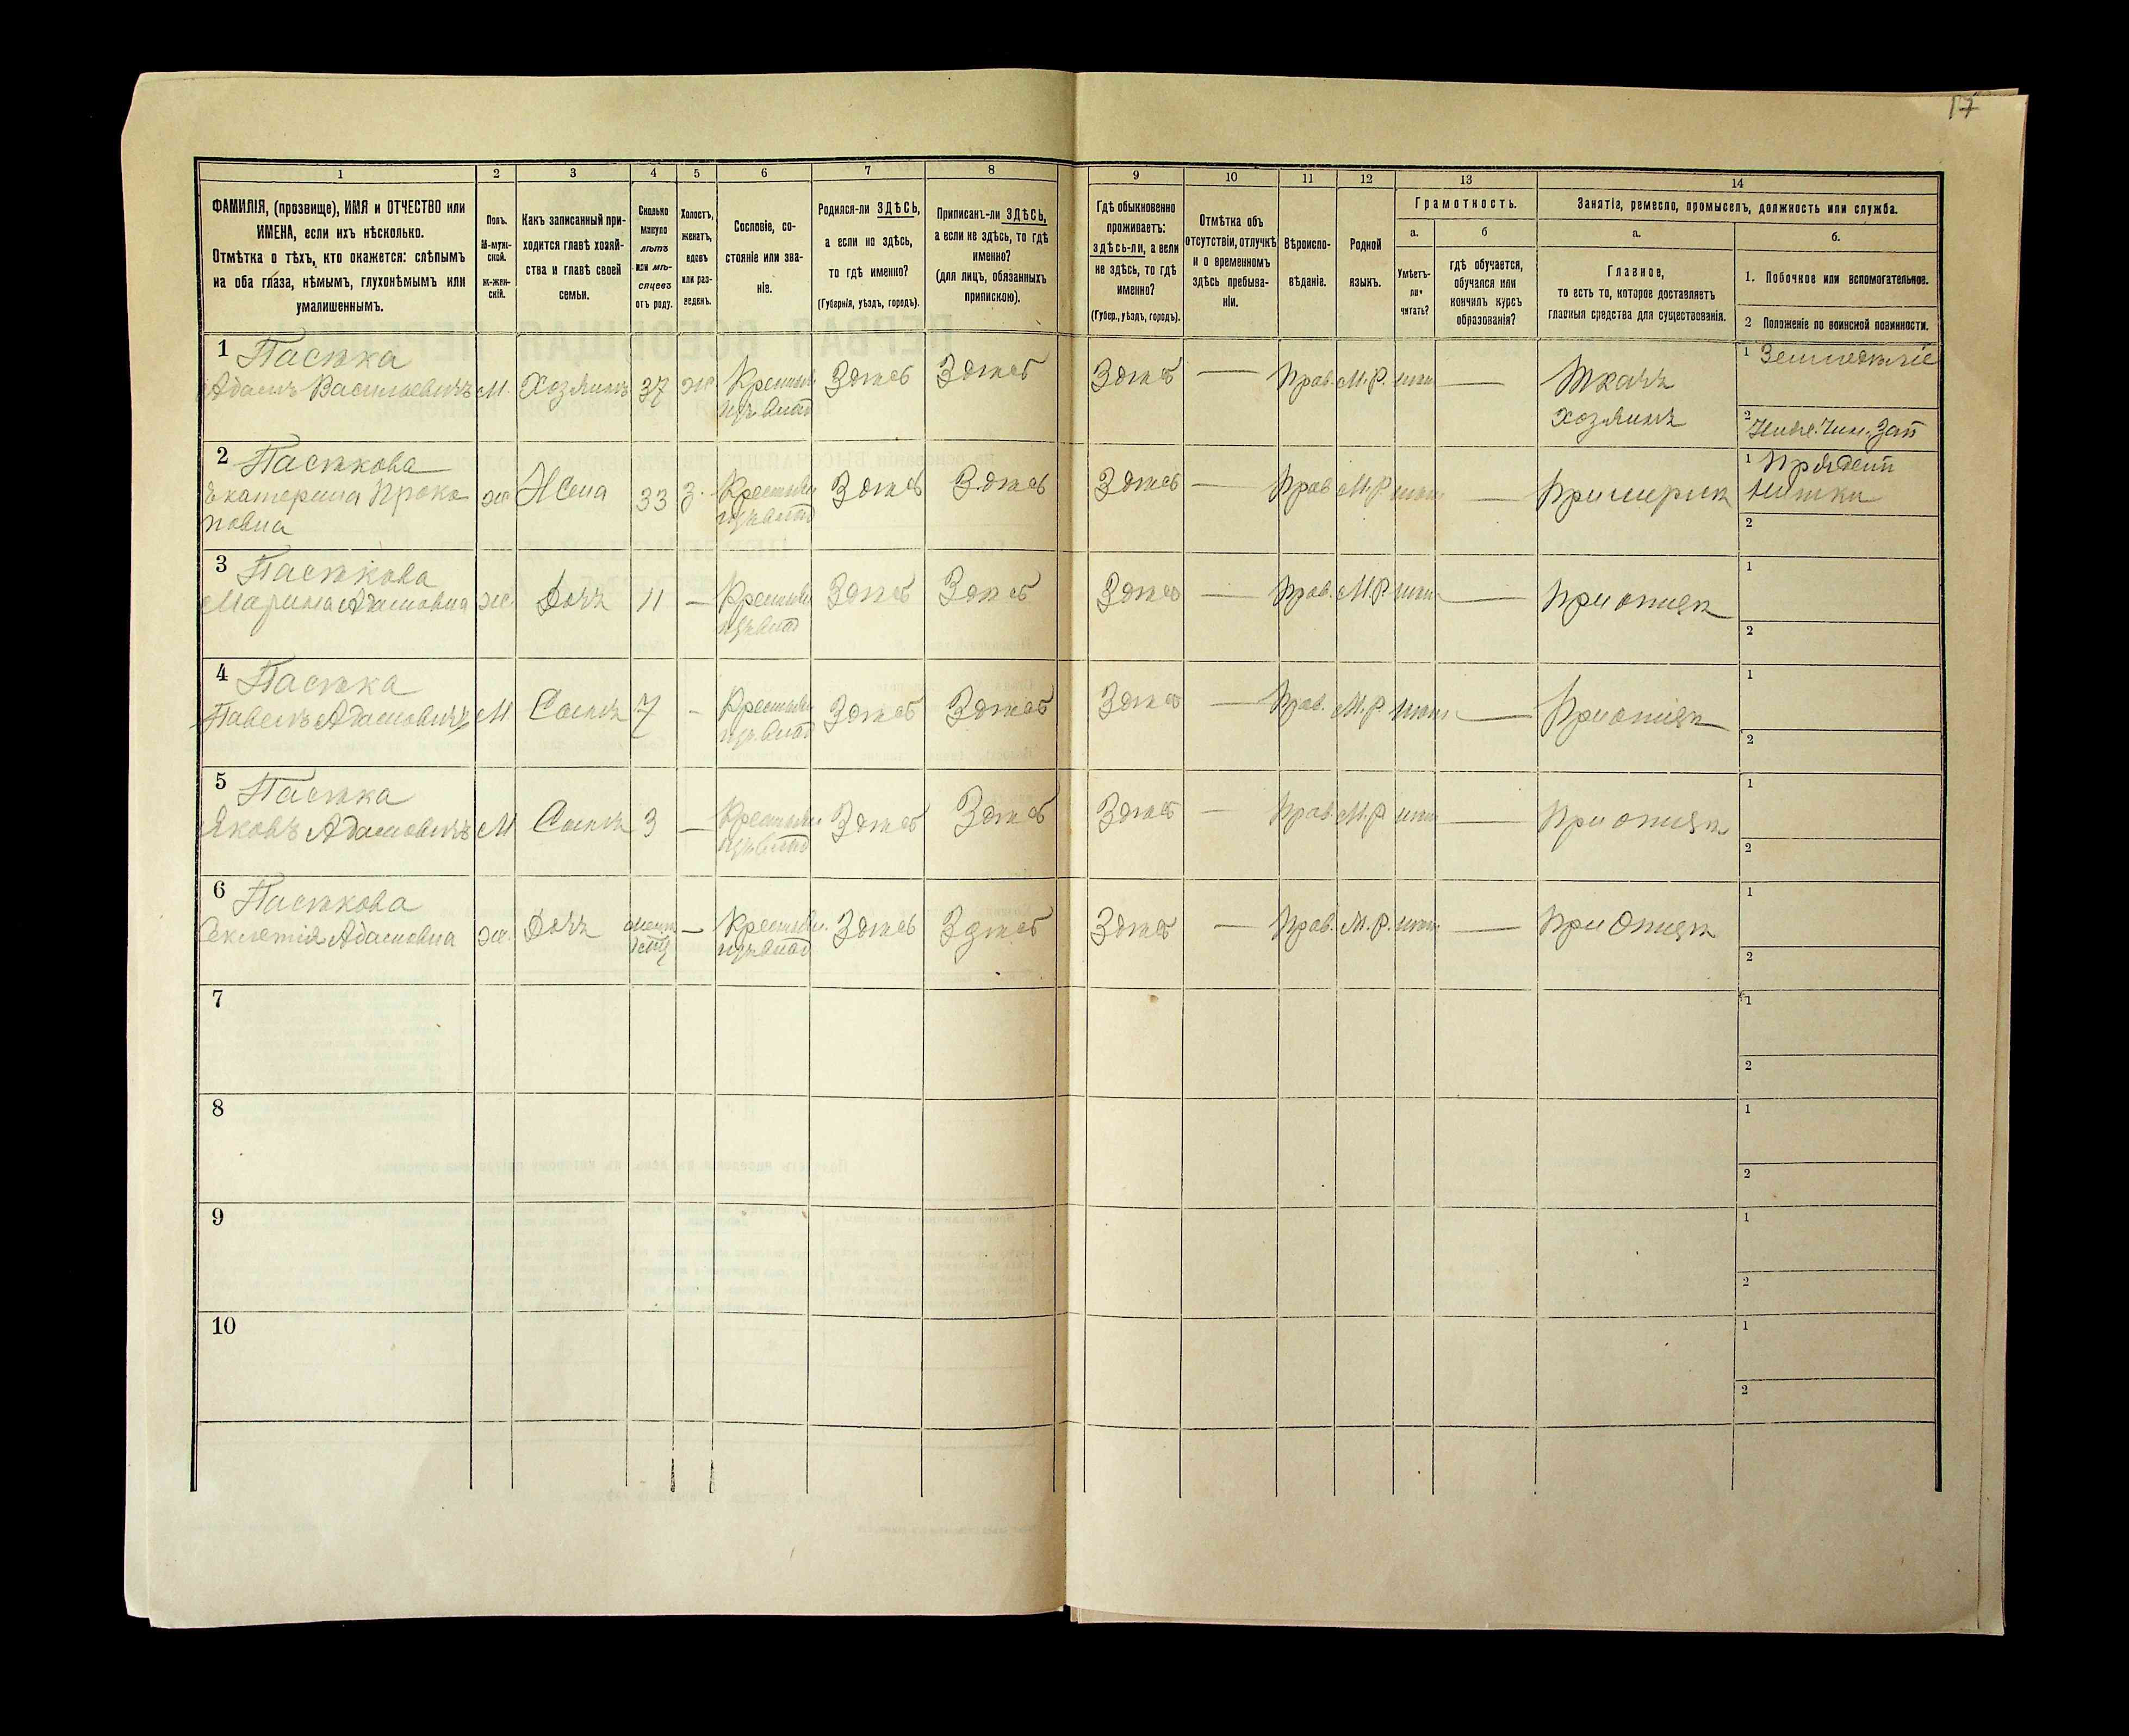 17
1 2 3 4 5 6 7 8 9 10 11 12 13 14
ФАМИЛІЯ, (прозвище), ИМЯ и ОТЧЕСТВО или
ИМЕНА, если ихъ нѣсколько.
Отмѣтка о тѣхъ, кто окажется: слѣпымъ
на оба глаза, нѣмымъ, глухонѣмымъ или
умалишеннымъ.
Полъ.
М-муж-
ской.
ж-жен-
скій.
Какъ записанный при-
ходится главѣ хозяй-
ства и главѣ своей
семьи.
Сколько
минуло
лѣтъ
или мѣ-
сяцевъ
отъ роду.
Холостъ,
женатъ,
вдовъ
или раз-
веденъ.
Сословіе, со-
стояніе или зва-
ніе.
Родился-ли ЗДѢСЬ,
а если не здѣсь,
то гдѣ именно?
(Губернія, уѣздъ, городъ).
Приписанъ-ли ЗДѢСЬ,
а если не здѣсь, то гдѣ
именно?
(для лицъ, обязанныхъ
припискою).
Гдѣ обыкновенно
проживаетъ:
здѣсь-ли, а если
не здѣсь, то гдѣ
именно?
(Губер., уѣздъ, городъ).
Отмѣтка объ
отсутствіи, отлучкѣ
и о временномъ
здѣсь пребыва-
ніи.
Вѣроиспо-
вѣданіе.
Родной
языкъ.
Грамотность.
а.
Умѣетъ-
ли
читать?
б
гдѣ обучается,
обучался или
кончилъ курсъ
образованія?
Занятіе, ремесло, промыселъ, должность или служба.
а.
Главное,
то есть то, которое доставляетъ
главныя средства для существованія.
б.
1. Побочное или вспомогательное.
2 Положеніе по воинской повинности.
1 Пасѣка
Адамъ Васильевичъ М. Хозяинъ 37 ж Крестьян. Здѣсь Здѣсь Здѣсь — Прав. М.Р. — Ткачъ
изъ влад хозяинъ
1 Земледѣліе
2 Нижн. Чин. Зап
2 Пасѣкова
Екатерина Проко ж Жена 33 З. Крестьян Здѣсь Здѣсь Здѣсь — Прав М.Р — При мужѣ
повна изъ влад
1 Прядетъ
нитки
2
3 Пасѣкова
Марина Адамовна ж. Дочь 11 — Крестьян Здѣсь Здѣсь Здѣсь — Прав. М.Р — При отцѣ
изъ влад
1
2
4 Пасѣка
Павелъ Адамовичъ М Сынъ 7 - Крестьян Здѣсь Здѣсь Здѣсь — Прав. М.Р — При отцѣ
изъ влад
1
2
5 Пасѣка
Яковъ Адамовичъ М Сынъ 3 — Крестьян Здѣсь Здѣсь Здѣсь — Прав. М.Р — При отцѣ
изъ влад
1
2
6 Пасѣкова
Секлетія Адамовна ж. Дочь — Крестьян. Здѣсь Здѣсь Здѣсь — Прав. М.Р. — При Отцѣ
изъ влад
1
2
7
1
2
8
1
2
9
1
2
10
1
2